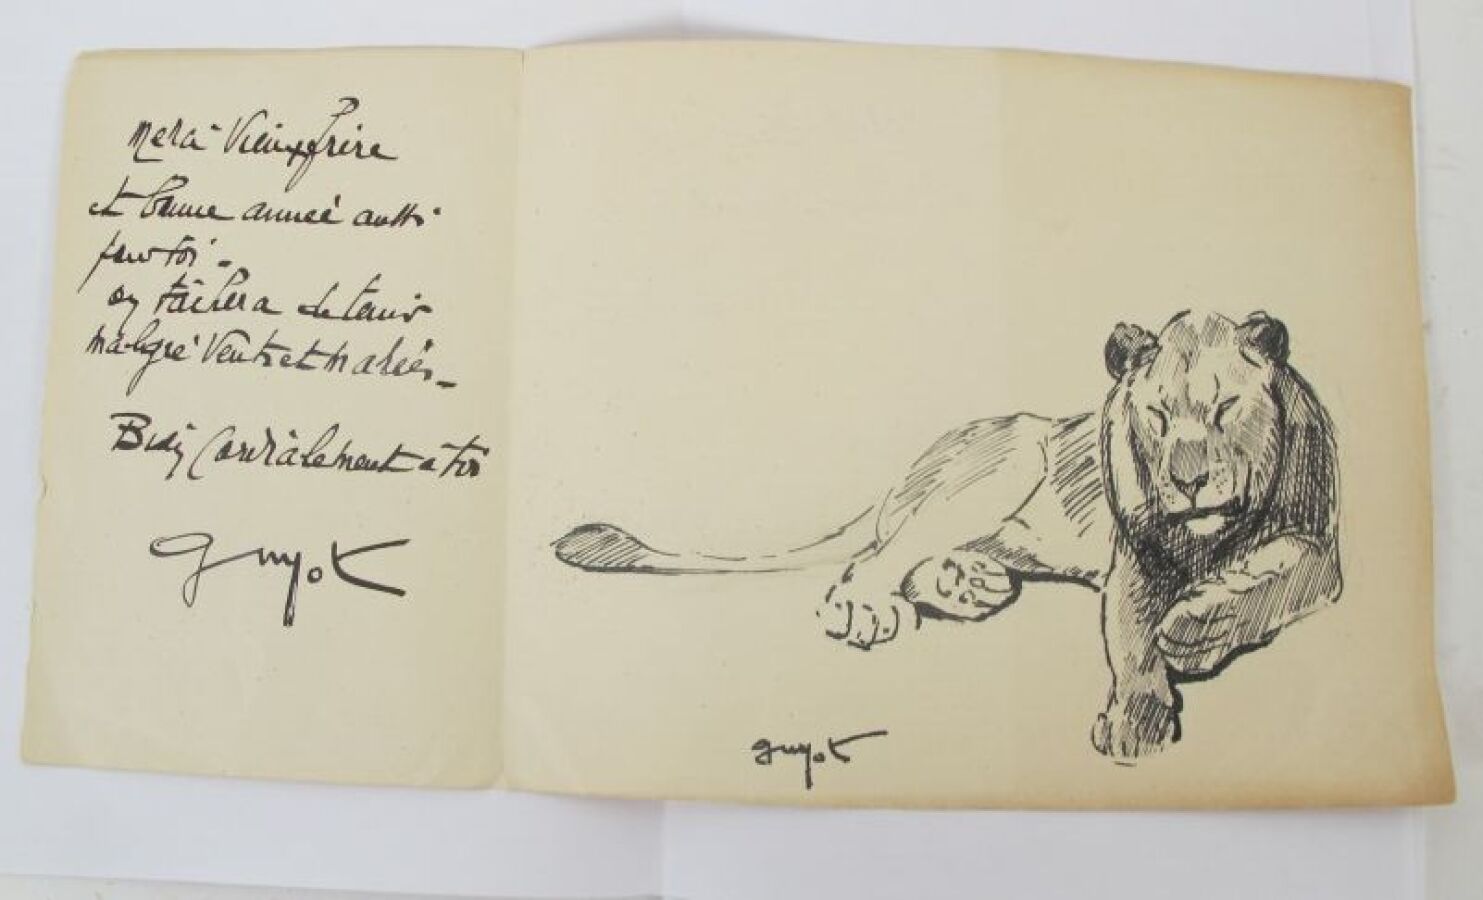 Merci Vieux frère
et bonne année aussi
pour toi -
on tâchera de tenir
malgré Vents et marées -
Bien Cordialement a toi
guyot
guyot